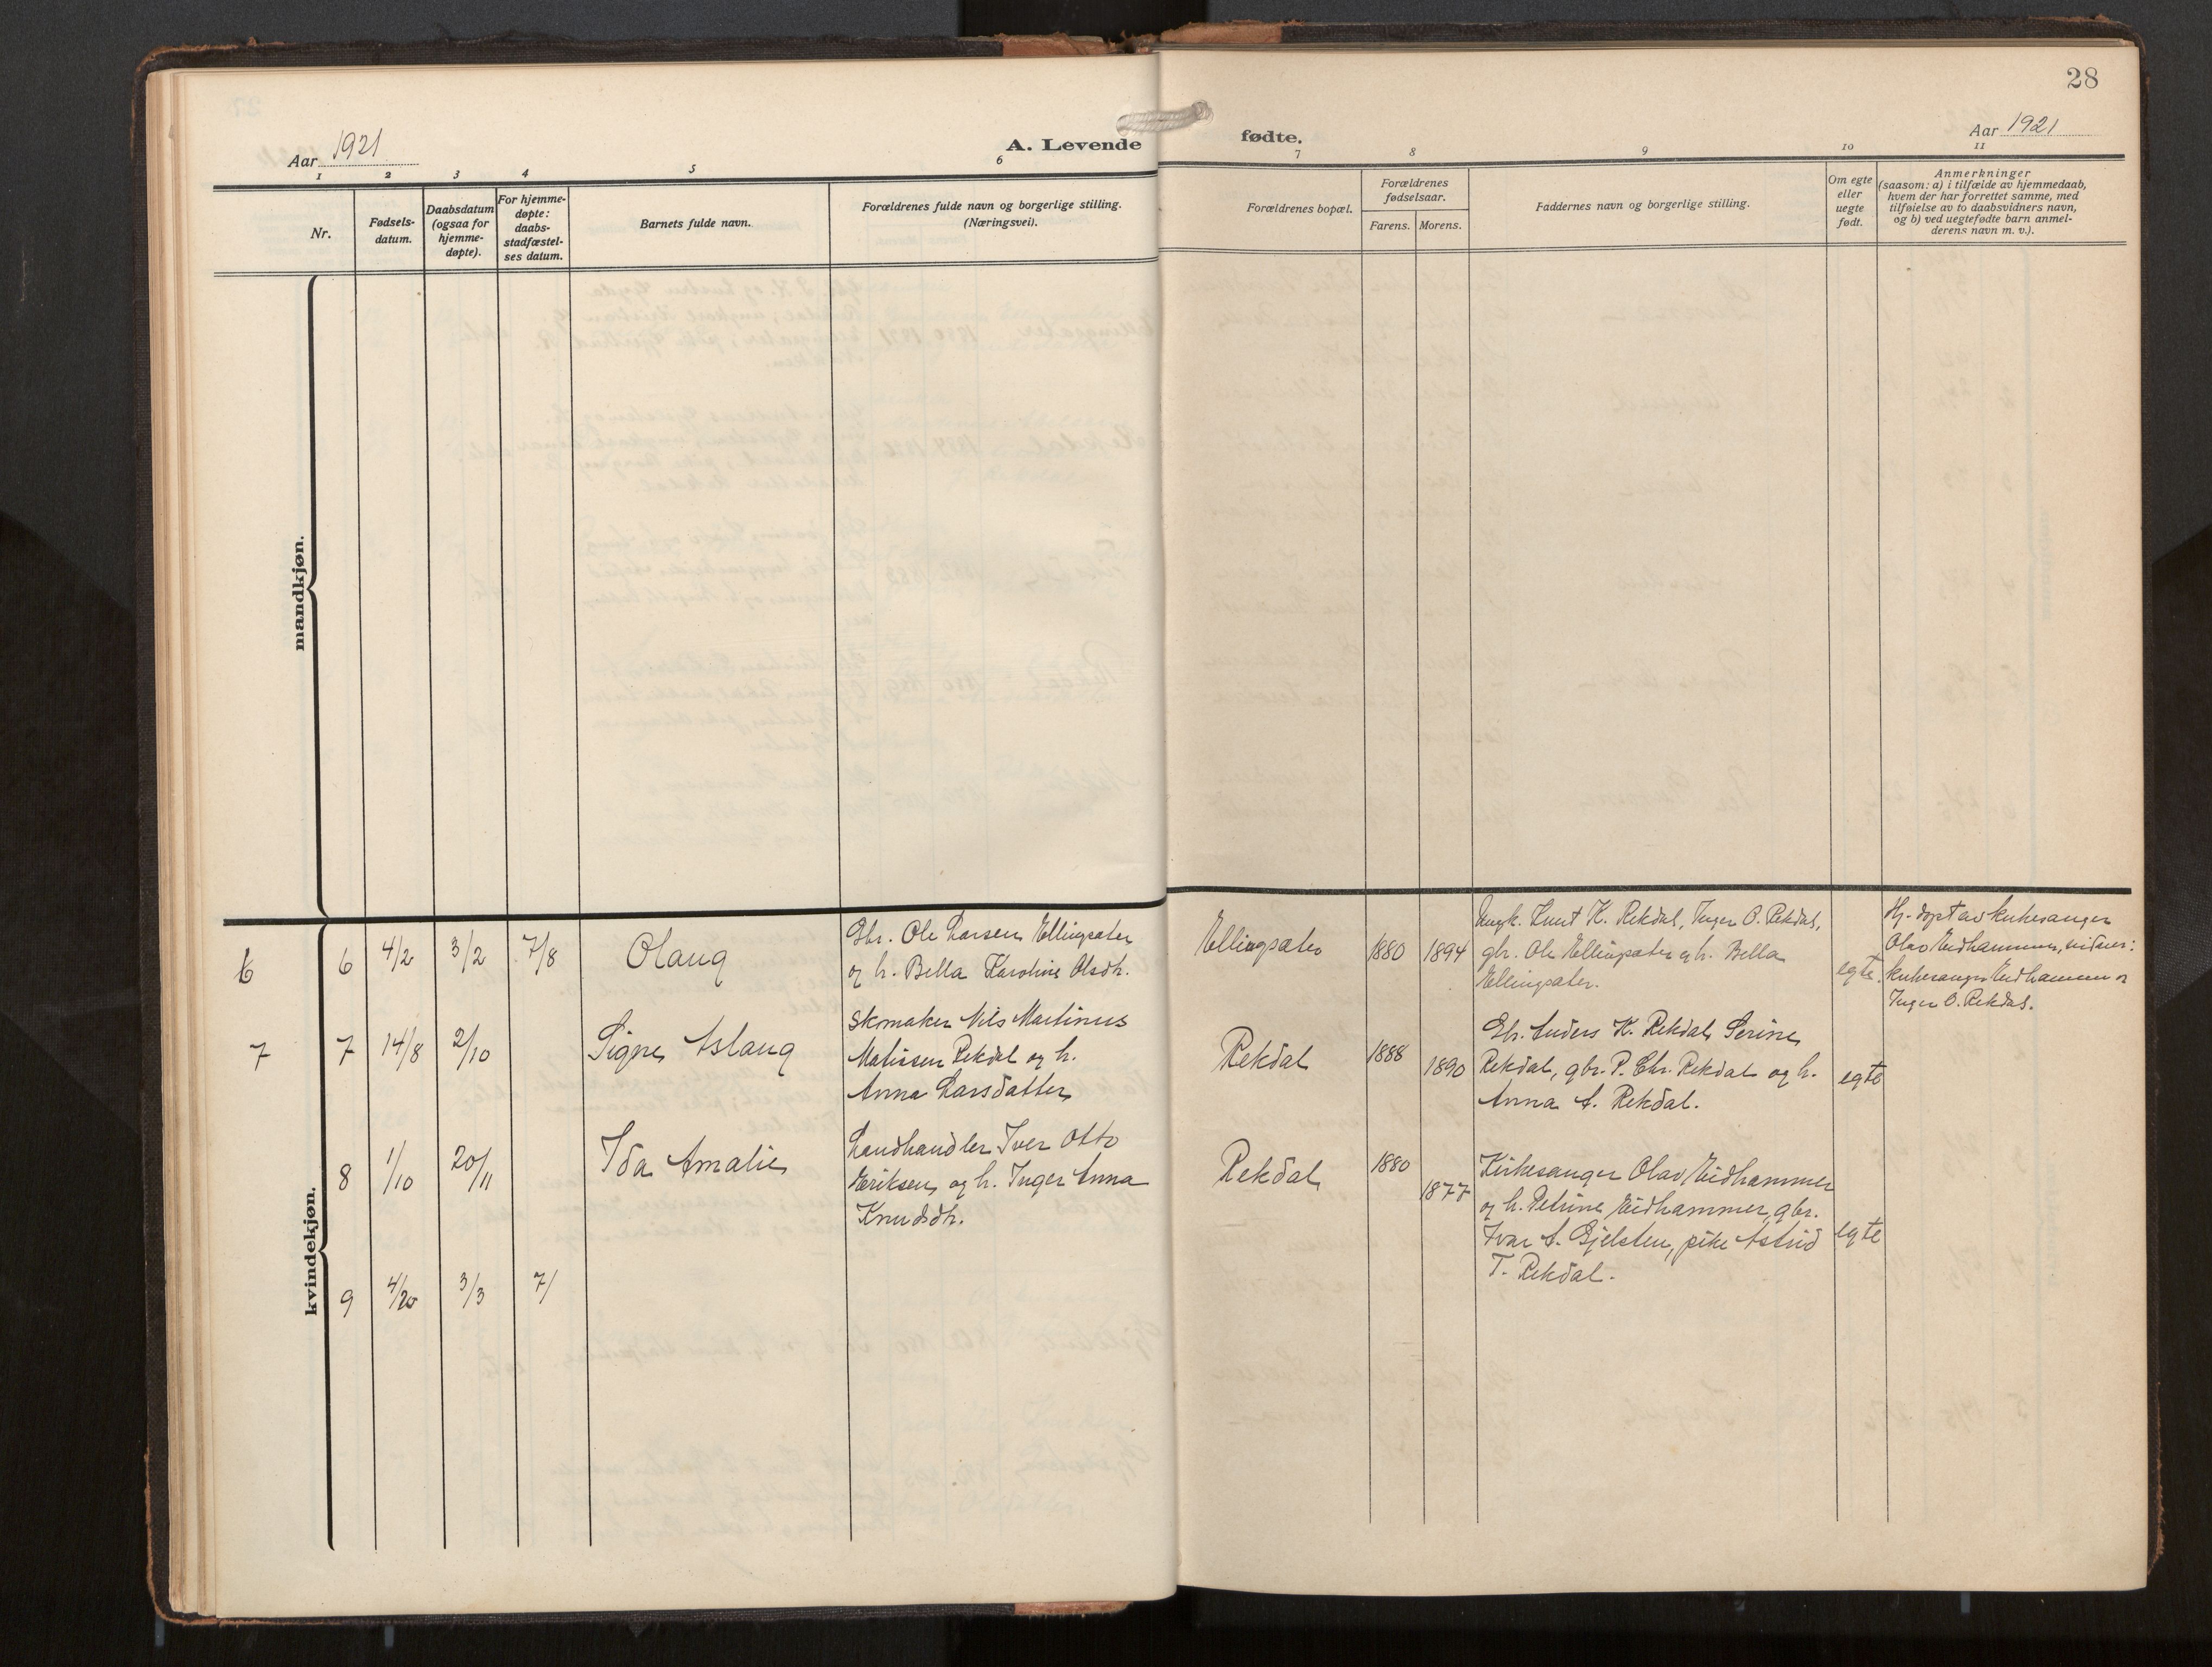 28
Aar 1921
A. Levende
fødte.
Aar 1921
1 2 3 4 5 6 7 8 9 10 11
Nr.
Fødsels-
datum.
Daabsdatum
(ogsaa for
hjemme-
døpte).
For hjemme-
døpte:
daabs-
stadfæstel-
ses datum.
Barnets fulde navn.
Forældrenes fulde navn og borgerlige stilling.
(Næringsvei).
Forældrenes bopæl.
Forældrenes
fødselsaar.
Farens. Morens.
Faddernes navn og borgerlige stilling.
Om egte
eller
uegte
født.
Anmerkninger
(saasom: a) i tilfælde av hjemmedaab,
hvem der har forrettet samme, med
tilføielse av to daabsvidners navn,
og b) ved uegtefødte barn anmel-
derens navn m. v.).
mandkjøn.
kvindekjøn.
6 6 4/2 3/2 7/8 Olaug
Gbr. Ole Larsen Ellingsæter
og h. Bella Karoline Olsdt.
Ellingsæter 1880 1894
Ungk. Knut K. Rekdal, Inger O. Rekdal,
gbr. Ole Ellingsæter og h. Bella
Ellingsæter.
egte
Hj. døpt av kirkesanger
Olav Eidhammer, vitner:
kirkesanger Eidhammer og
Inger O. Rekdal.
7 7 14/8 2/10 Signe Aslaug
Skomaker Nils Martinus
Matissen Rekdal og h.
Anna Larsdatter
Rekdal 1888 1890
Gbr. Anders K. Rekdal, Serine
Rekdal, gbr. P. Chr. Rekdal og h.
Anna A. Rekdal.
egte
8 1/10 20/11 Ida Amalie
Landhandler Iver Otto
Eriksen og h. Inger Anna
Knudsdt.
Rekdal 1880 1877
Kirkesanger Olav Eidhammer
og h. Petrine Eidhammer, gbr.
Ivar A. Gjelsten, pike Astrid
T. Rekdal.
egte
9 4/20 3/3 7/